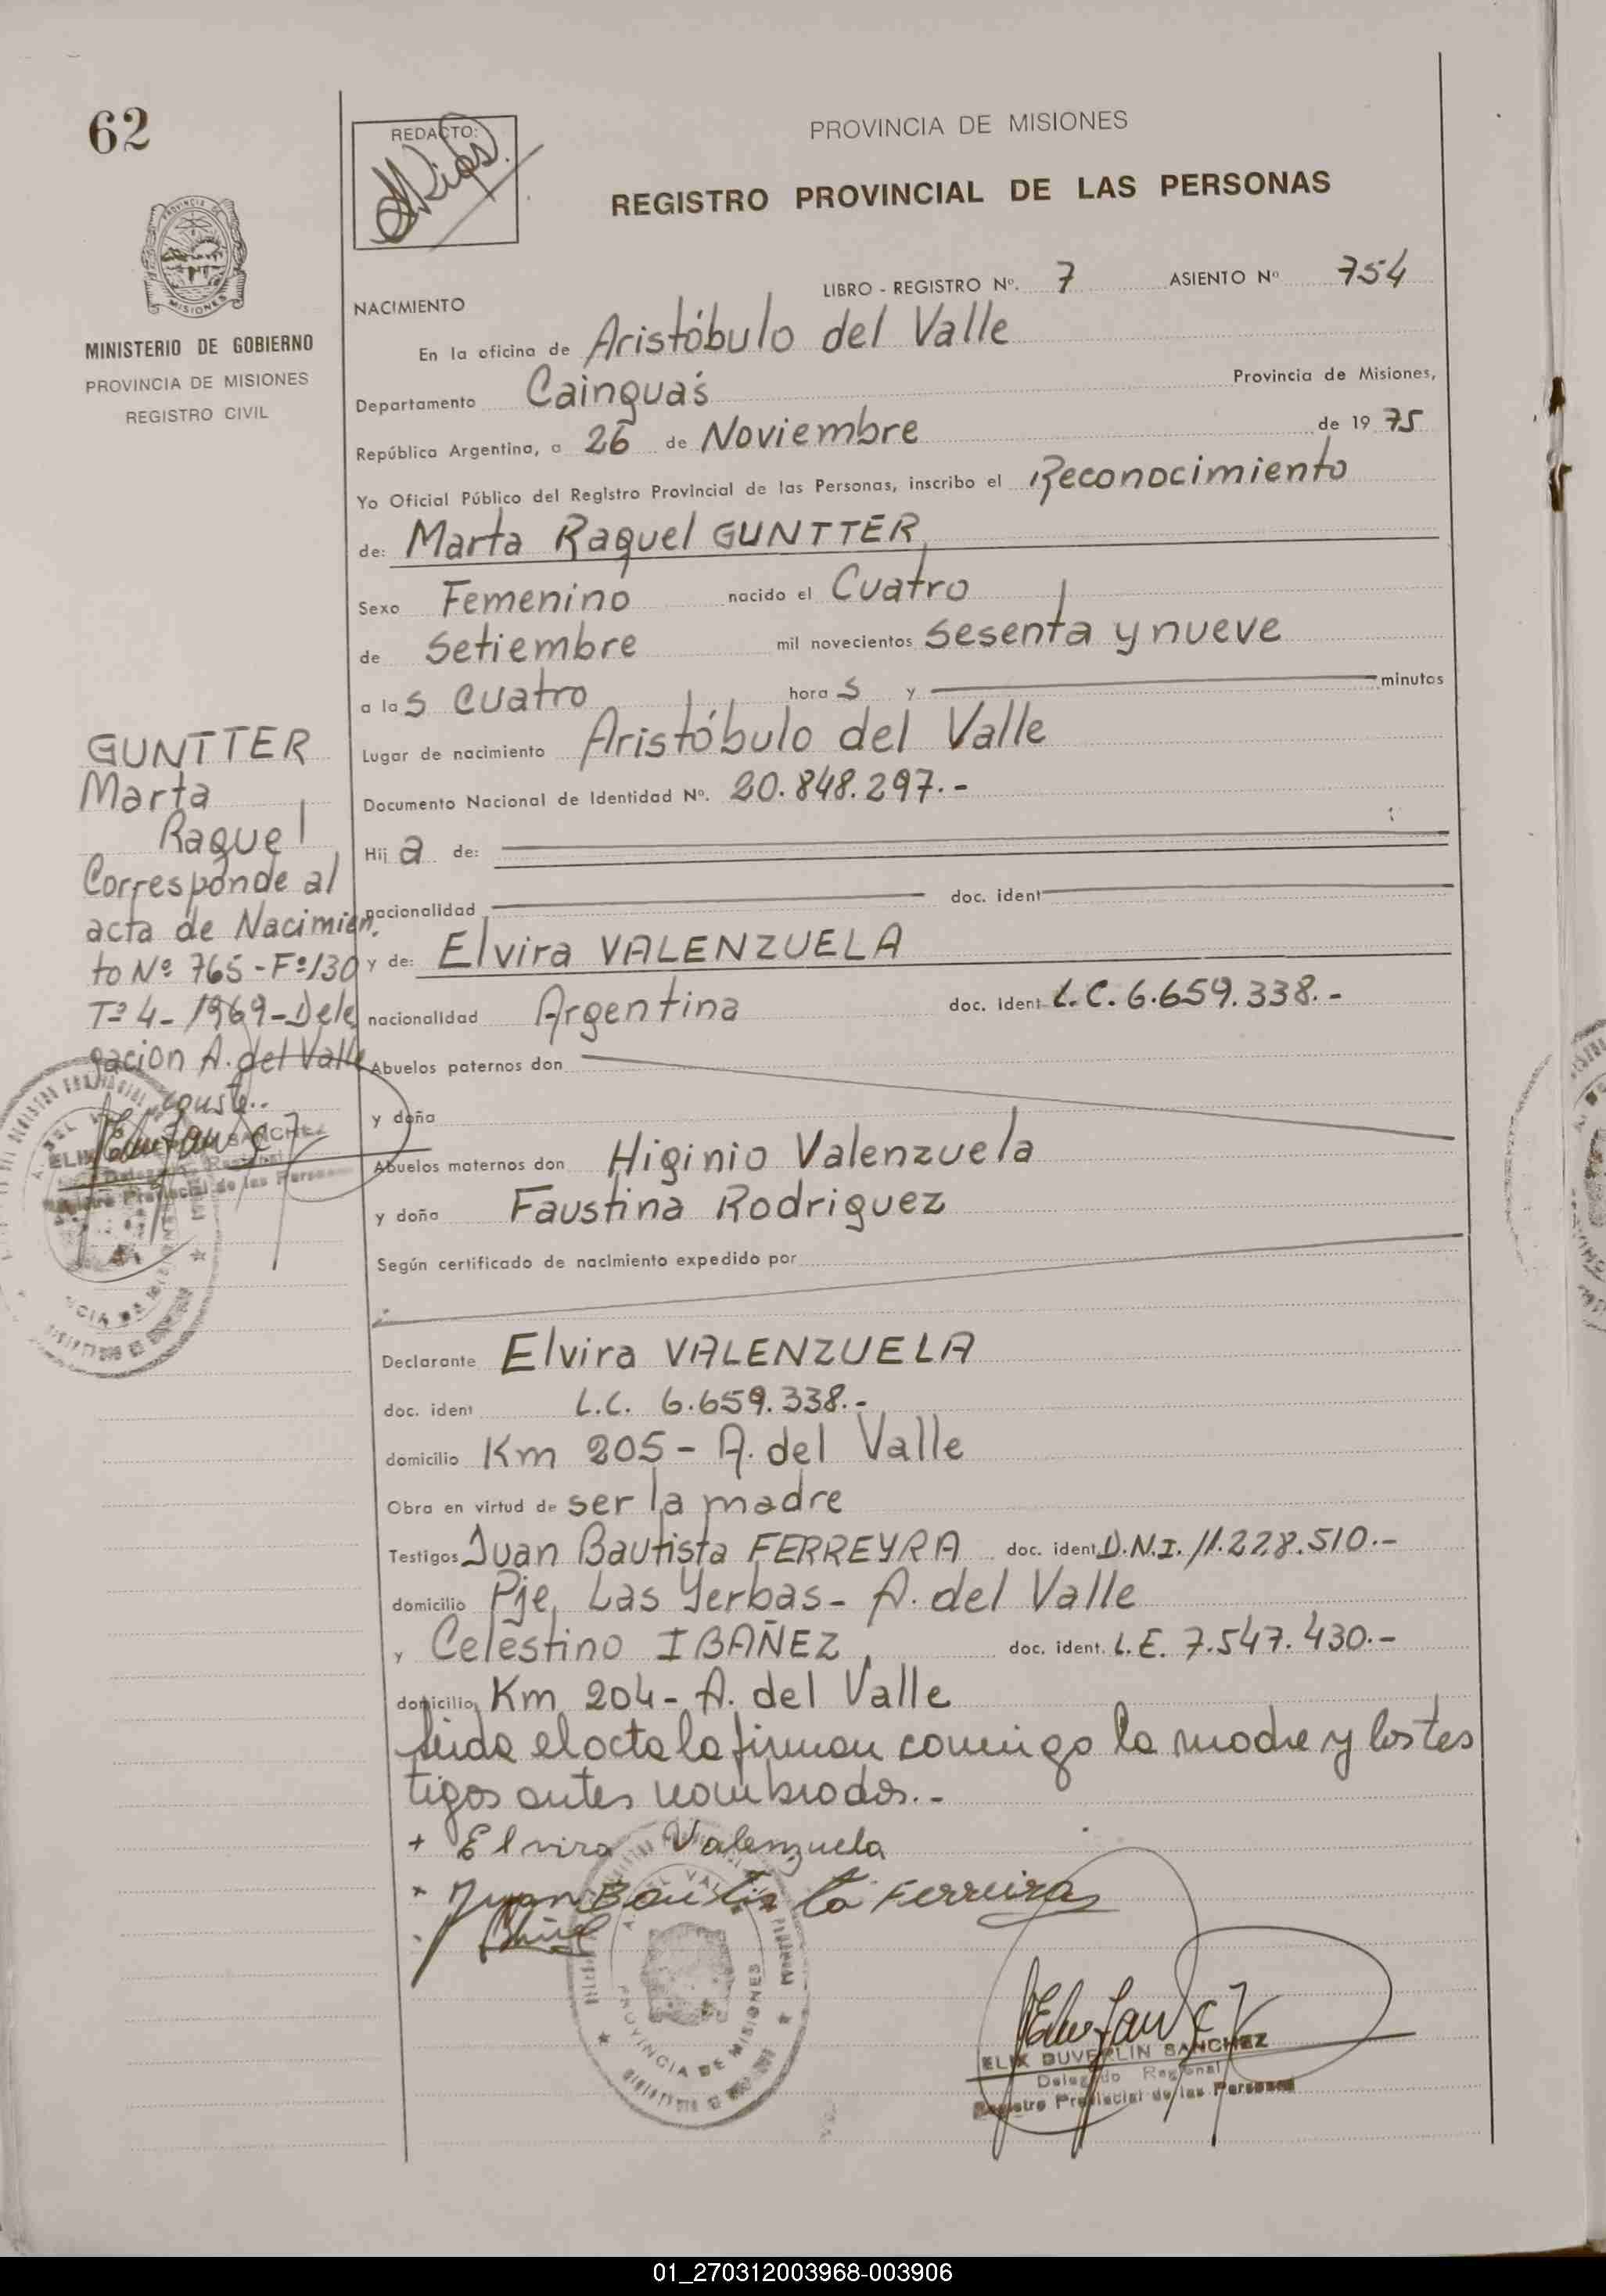 62
REDACTO:
PROVINCIA DE MISIONES
REGISTRO PROVINCIAL DE LAS PERSONAS
MINISTERIO DE GOBIERNO
PROVINCIA DE MISIONES
REGISTRO CIVIL
LIBRO - REGISTRO Nº. 7 ASIENTO Nº 754
NACIMIENTO
En la oficina de Aristóbulo del Valle
Departamento Cainguás Provincia de Misiones,
República Argentina, a 26 de Noviembre de 1975
Yo Oficial Público del Registro Provincial de las Personas, inscribo el Reconocimiento
de: Marta Raquel GUNTTER
Sexo Femenino nacido el Cuatro
de Setiembre mil novecientos Sesenta y nueve
a las cuatro horas y minutos
Lugar de nacimiento Aristóbulo del Valle
Documento Nacional de Identidad Nº. 20.848.297.-
Hija de:
nacionalidad doc. ident
y de: Elvira VALENZUELA
nacionalidad Argentina doc. ident L.C. 6.659.338.-
Abuelos paternos don
y doña
Abuelos maternos don Higinio Valenzuela
y doña Faustina Rodriguez
Según certificado de nacimiento expedido por
Declarante Elvira VALENZUELA
doc. ident L.C. 6.659.338.-
domicilio Km 205 - A. del Valle
Obra en virtud de ser la madre
Testigos Juan Bautista FERREYRA doc. ident D.N.I. 11.228.510.-
domicilio Pje. Las Yerbas - A. del Valle
y Celestino IBAÑEZ, doc. ident. L.E. 7.547.430.-
domicilio Km 204 - A. del Valle
Leida el acta la firman conmigo la madre y los tes
tigos antes nombrados.-
+ Elvira Valenzuela
Juan Bautista Ferreira
ELIX DUVERLIN SANCHEZ
Delegado Regional
Registro Provincial de las Personas
GUNTTER
Marta
Raquel
Corresponde al
acta de Nacimien
to Nº 765 - Fº 130
Tº 4 - 1969 - Dele
gacion A. del Valle
conste..
ELIX SANCHEZ
Delegado Regional
Registro Provincial de las Personas
PROVINCIA DE MISIONES
01_270312003968-003906